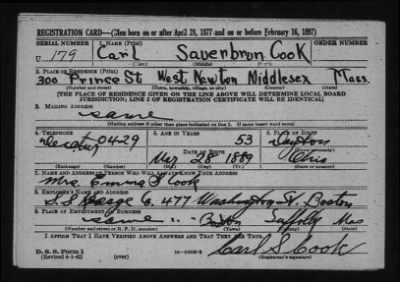 REGISTRATION CARD—(Men born on or after April 28, 1877 and on or before February 16, 1897)
SERIAL NUMBER 1. NAME (Print) ORDER NUMBER
U 179 Carl Sauenbrun Cook
(First) (Middle) (Last)
2. PLACE OF RESIDENCE (Print)
300 Prince St West Newton Middlesex Mass
(Number and street) (Town, township, village, or city) (County) (State)
[THE PLACE OF RESIDENCE GIVEN ON THE LINE ABOVE WILL DETERMINE LOCAL BOARD
JURISDICTION; LINE 2 OF REGISTRATION CERTIFICATE WILL BE IDENTICAL]
3. MAILING ADDRESS
same
[Mailing address if other than place indicated on line 2. If same insert word same]
4. TELEPHONE 5. AGE IN YEARS 6. PLACE OF BIRTH
Decatur 0429 53 Dayton
DATE OF BIRTH (Town or county)
Mar 28 1889 Ohio
(Exchange) (Number) (Mo.) (Day) (Yr.) (State or country)
7. NAME AND ADDRESS OF PERSON WHO WILL ALWAYS KNOW YOUR ADDRESS
Mrs. Emma Cook
8. EMPLOYER'S NAME AND ADDRESS
S.S. 477 Washington St. Boston
9. PLACE OF EMPLOYMENT OR BUSINESS
same " " Boston Suffolk Mas
(Number and street or R. F. D. number) (Town) (County) (State)
I AFFIRM THAT I HAVE VERIFIED ABOVE ANSWERS AND THAT THEY ARE TRUE.
D. S. S. Form 1
(Revised 4-1-42) (over) Carl S. Cook
(Registrant's signature)